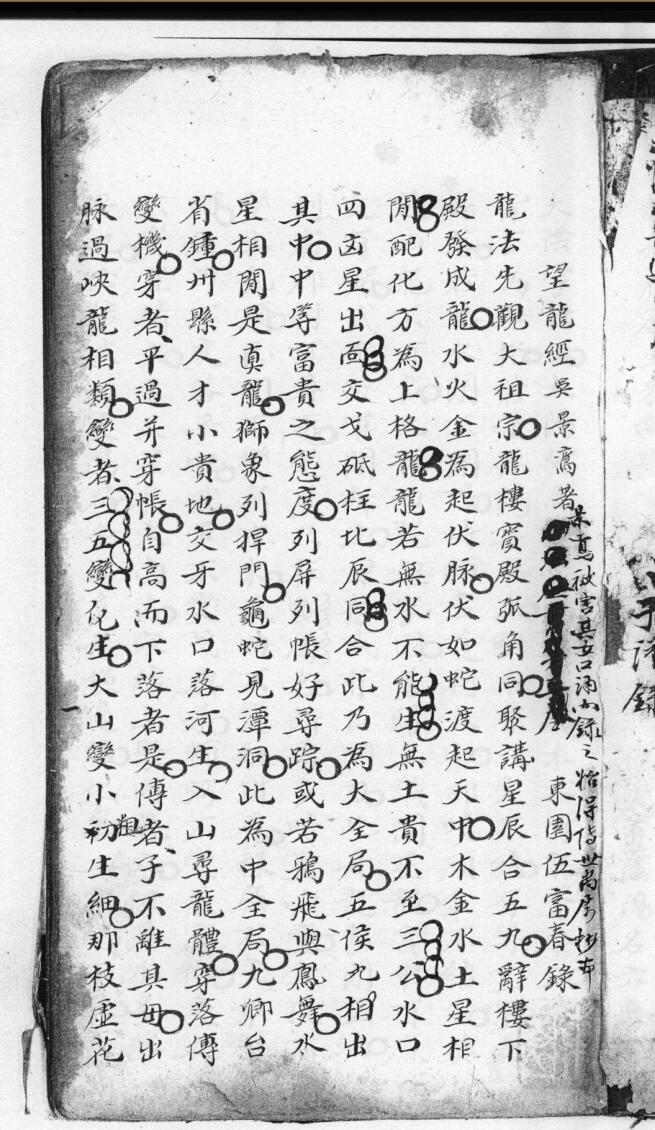 望龍經吳景鸞著
東園伍富春錄
龍法先觀大祖宗龍樓寳殿弧角同聚講星辰合五九辭樓下
殿發成龍水火金為起伏脉伏如蛇渡起天中木金水土星相
閒配化方為上格龍龍若無水不能生無土貴不至三公水口
四凶星出面交戈砥柱北辰同合此乃為大全局五侯九相出
其中中等富貴之態度列屏列帳好尋踪或若鴉飛與鳳舞水
星相閒是真龍獅象列捍門龜蛇見潭洞此為中全局九卿台
省鍾州縣人才小貴地交牙水口落河生入山尋龍體穿落傳
變機穿者平過并穿帳自高而下落者是傳者子不離其母出
脉過峽龍相類變者三五變化生大山變小粗生細那枝虛花